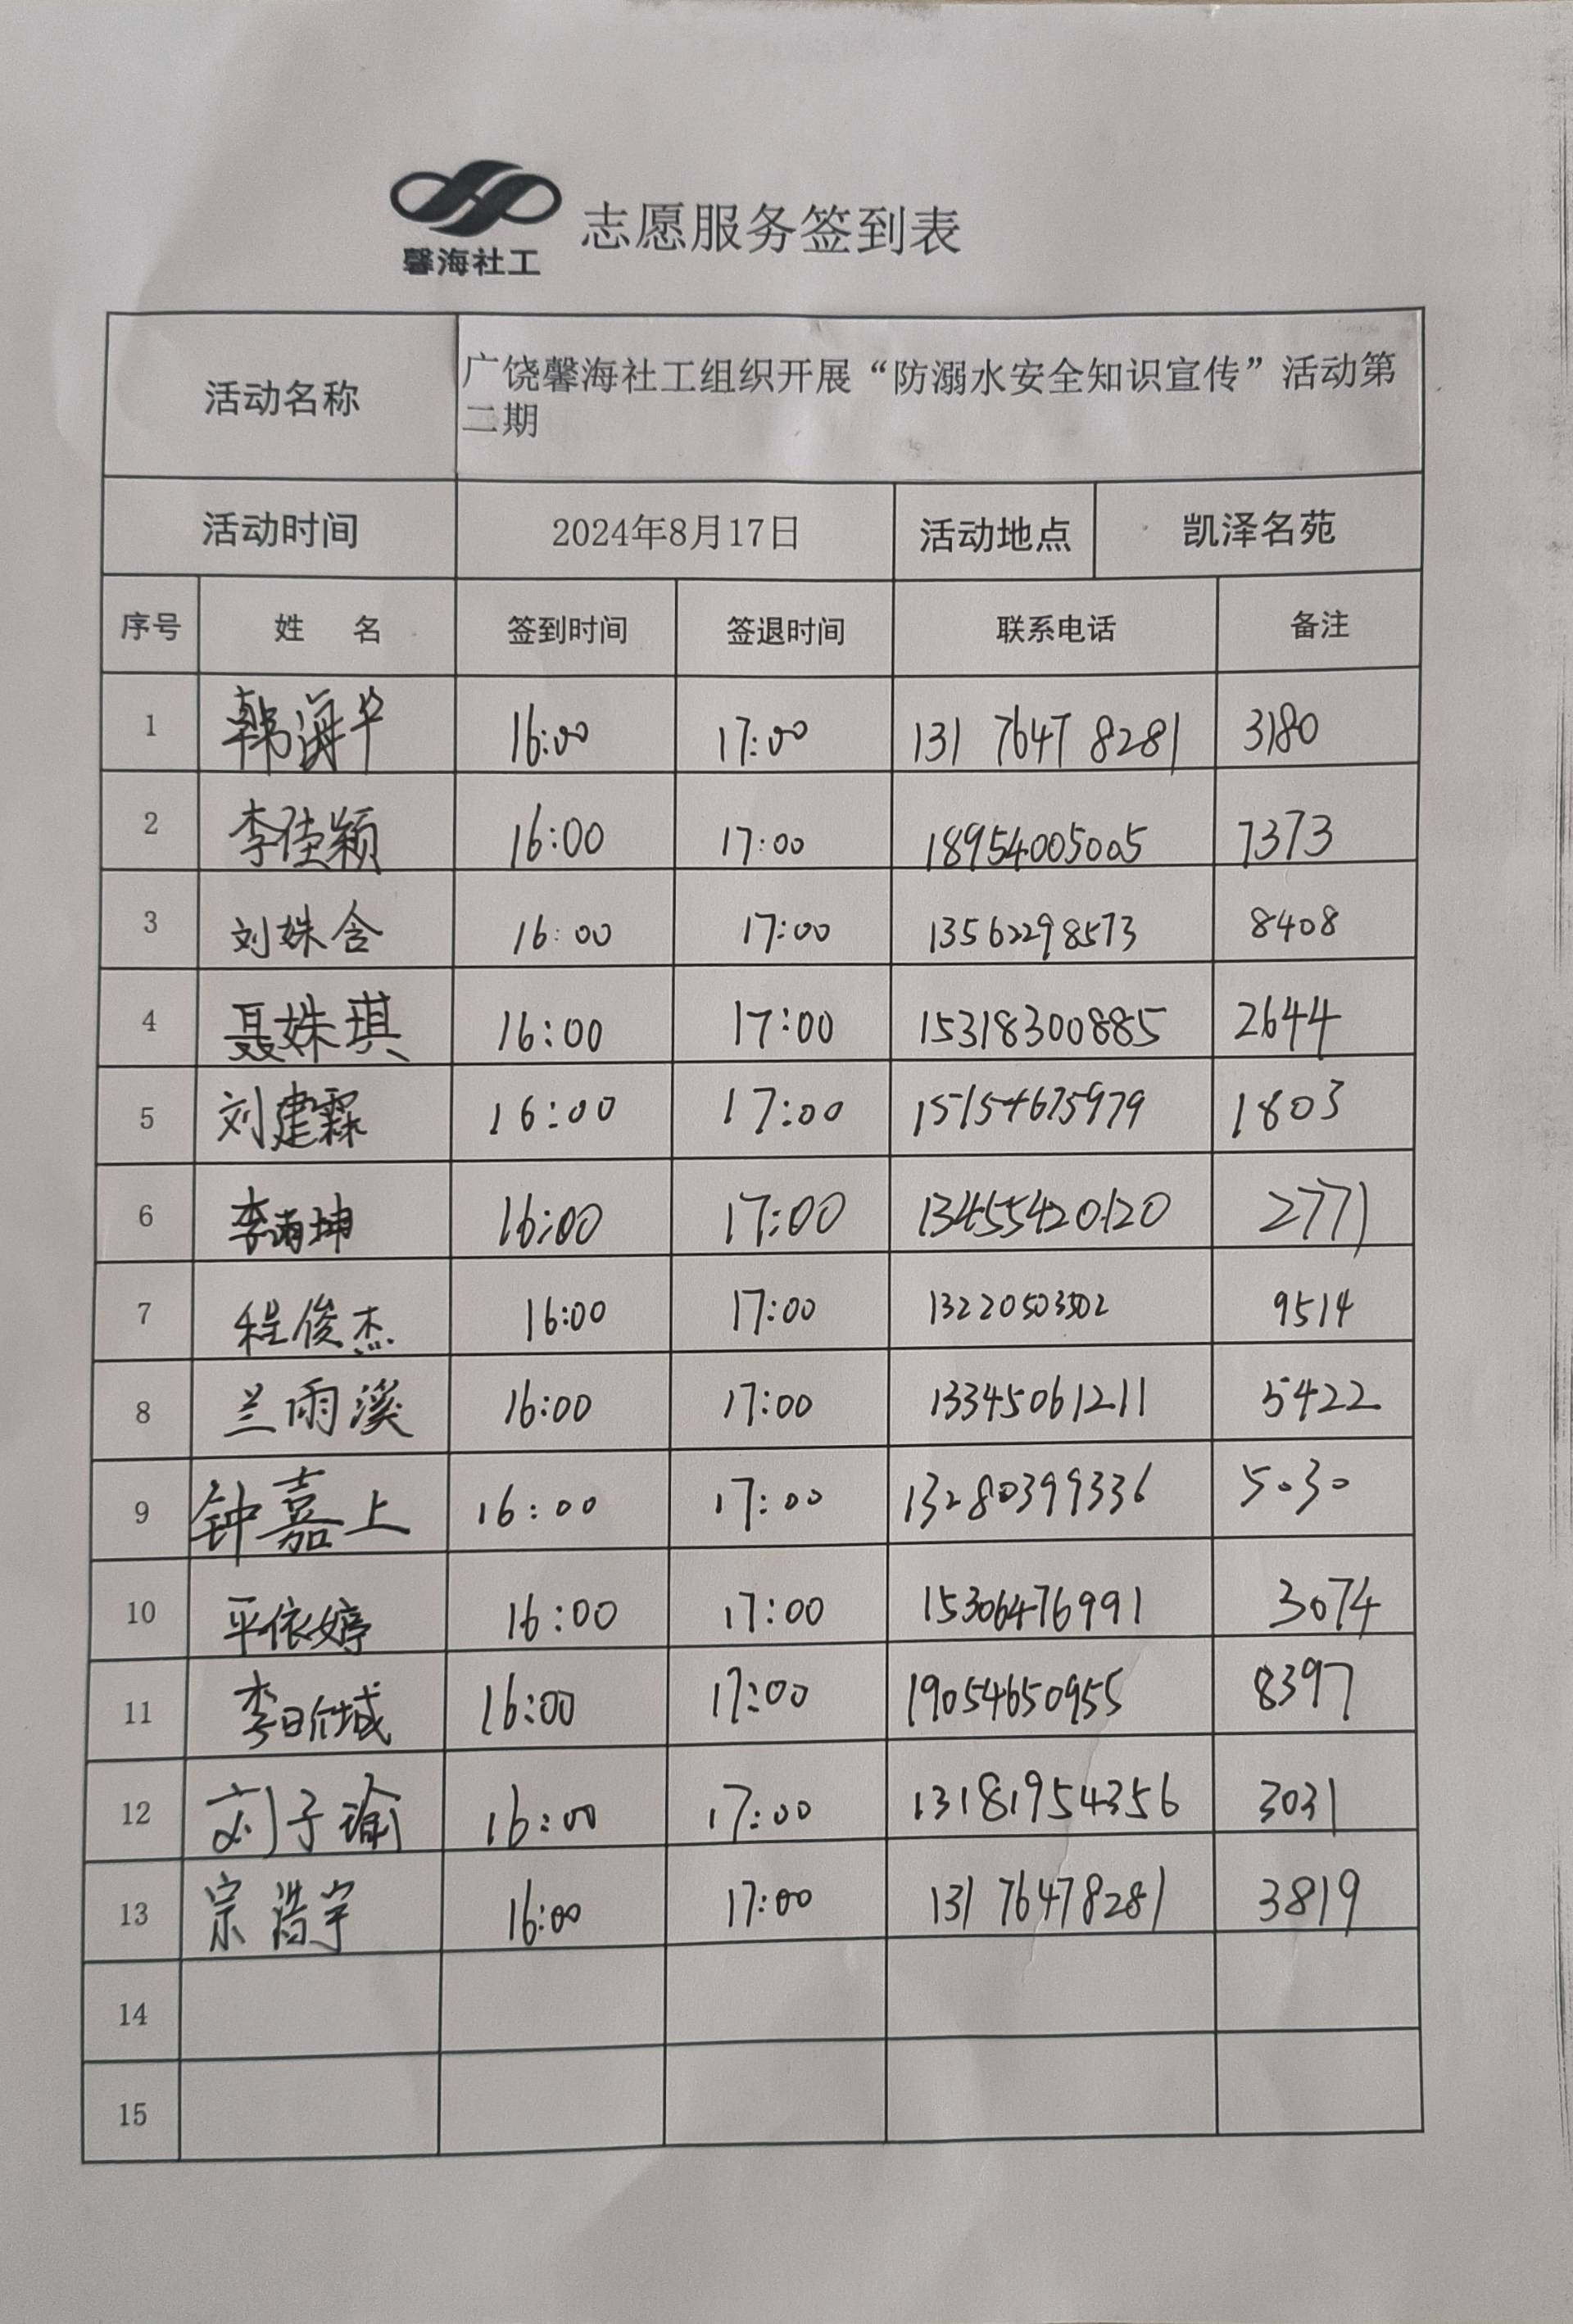 馨海社工
志愿服务签到表
活动名称 广饶馨海社工组织开展“防溺水安全知识宣传”活动第
二期
活动时间 2024年8月17日 活动地点 凯泽名苑
序号 姓 名 签到时间 签退时间 联系电话 备注
1 韩海华 16:00 17:00 131 7647 8281 3180
2 李佳颖 16:00 17:00 18954005005 7373
3 刘姝含 16:00 17:00 13562298573 8408
4 聂姝琪 16:00 17:00 15318300885 2644
5 刘建霖 16:00 17:00 15154675979 1803
6 李雨坤 16:00 17:00 13455420120 2771
7 程俊杰 16:00 17:00 13220503502 9514
8 兰雨溪 16:00 17:00 13345061211 5422
9 钟嘉上 16:00 17:00 13280399336 5030
10 平依婷 16:00 17:00 15306476991 3074
11 李 16:00 17:00 19054650955 8397
12 刘子瑜 16:00 17:00 13181954356 3031
13 宗浩宇 16:00 17:00 131 76478281 3819
14
15